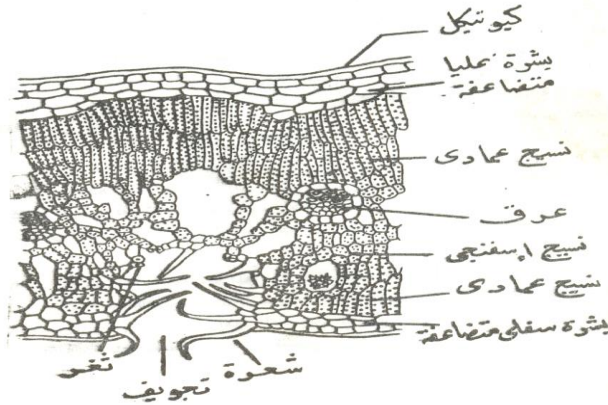 كيوتيكل
بشرة عليا
متضاعفة
نسيج عمادى
عرق
نسيج اسفنجى
نسيج عمادى
بشرة سفلى متضاعفة
شعرة
تجويف
ثغر